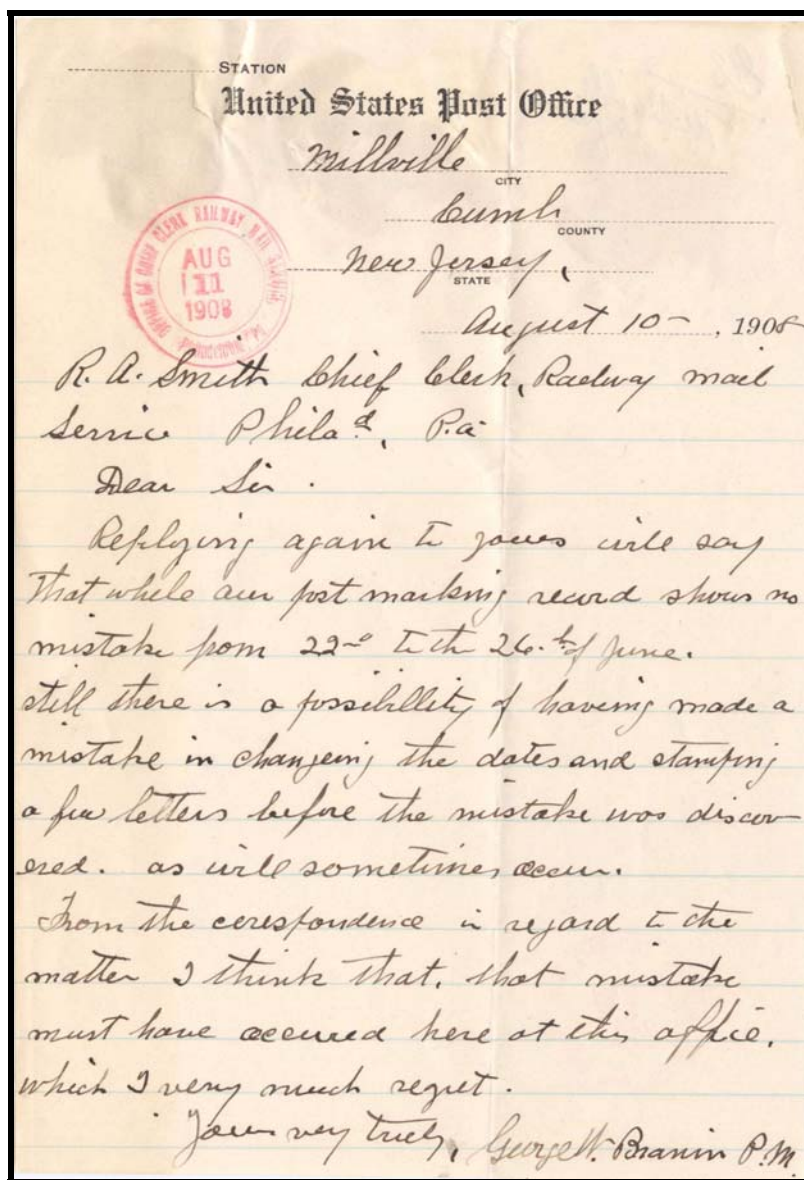 STATION
United States Post Office
Millville
CITY
Cumb
COUNTY
New Jersey,
STATE
August 10 - , 1908
OFFICE OF CHIEF CLERK RAILWAY MAIL SERVICE
AUG
11
1908
R. A. Smith Chief Clerk, Railway mail
Service Phila.d, Pa
Dear Sir.
Replying again to yours will say
that while our post marking record shows no
mistake from 22nd to the 26.th of June.
still there is a possibillity of haveing made a
mistake in changeing the dates and stamping
a few letters before the mistake was discov-
ered. as will sometimes occur.
From the corespondence in regard to the
matter I think that, that mistake
must have occured here at this office,
which I very much regret.
Yours very truly, George W. Branin P.M.